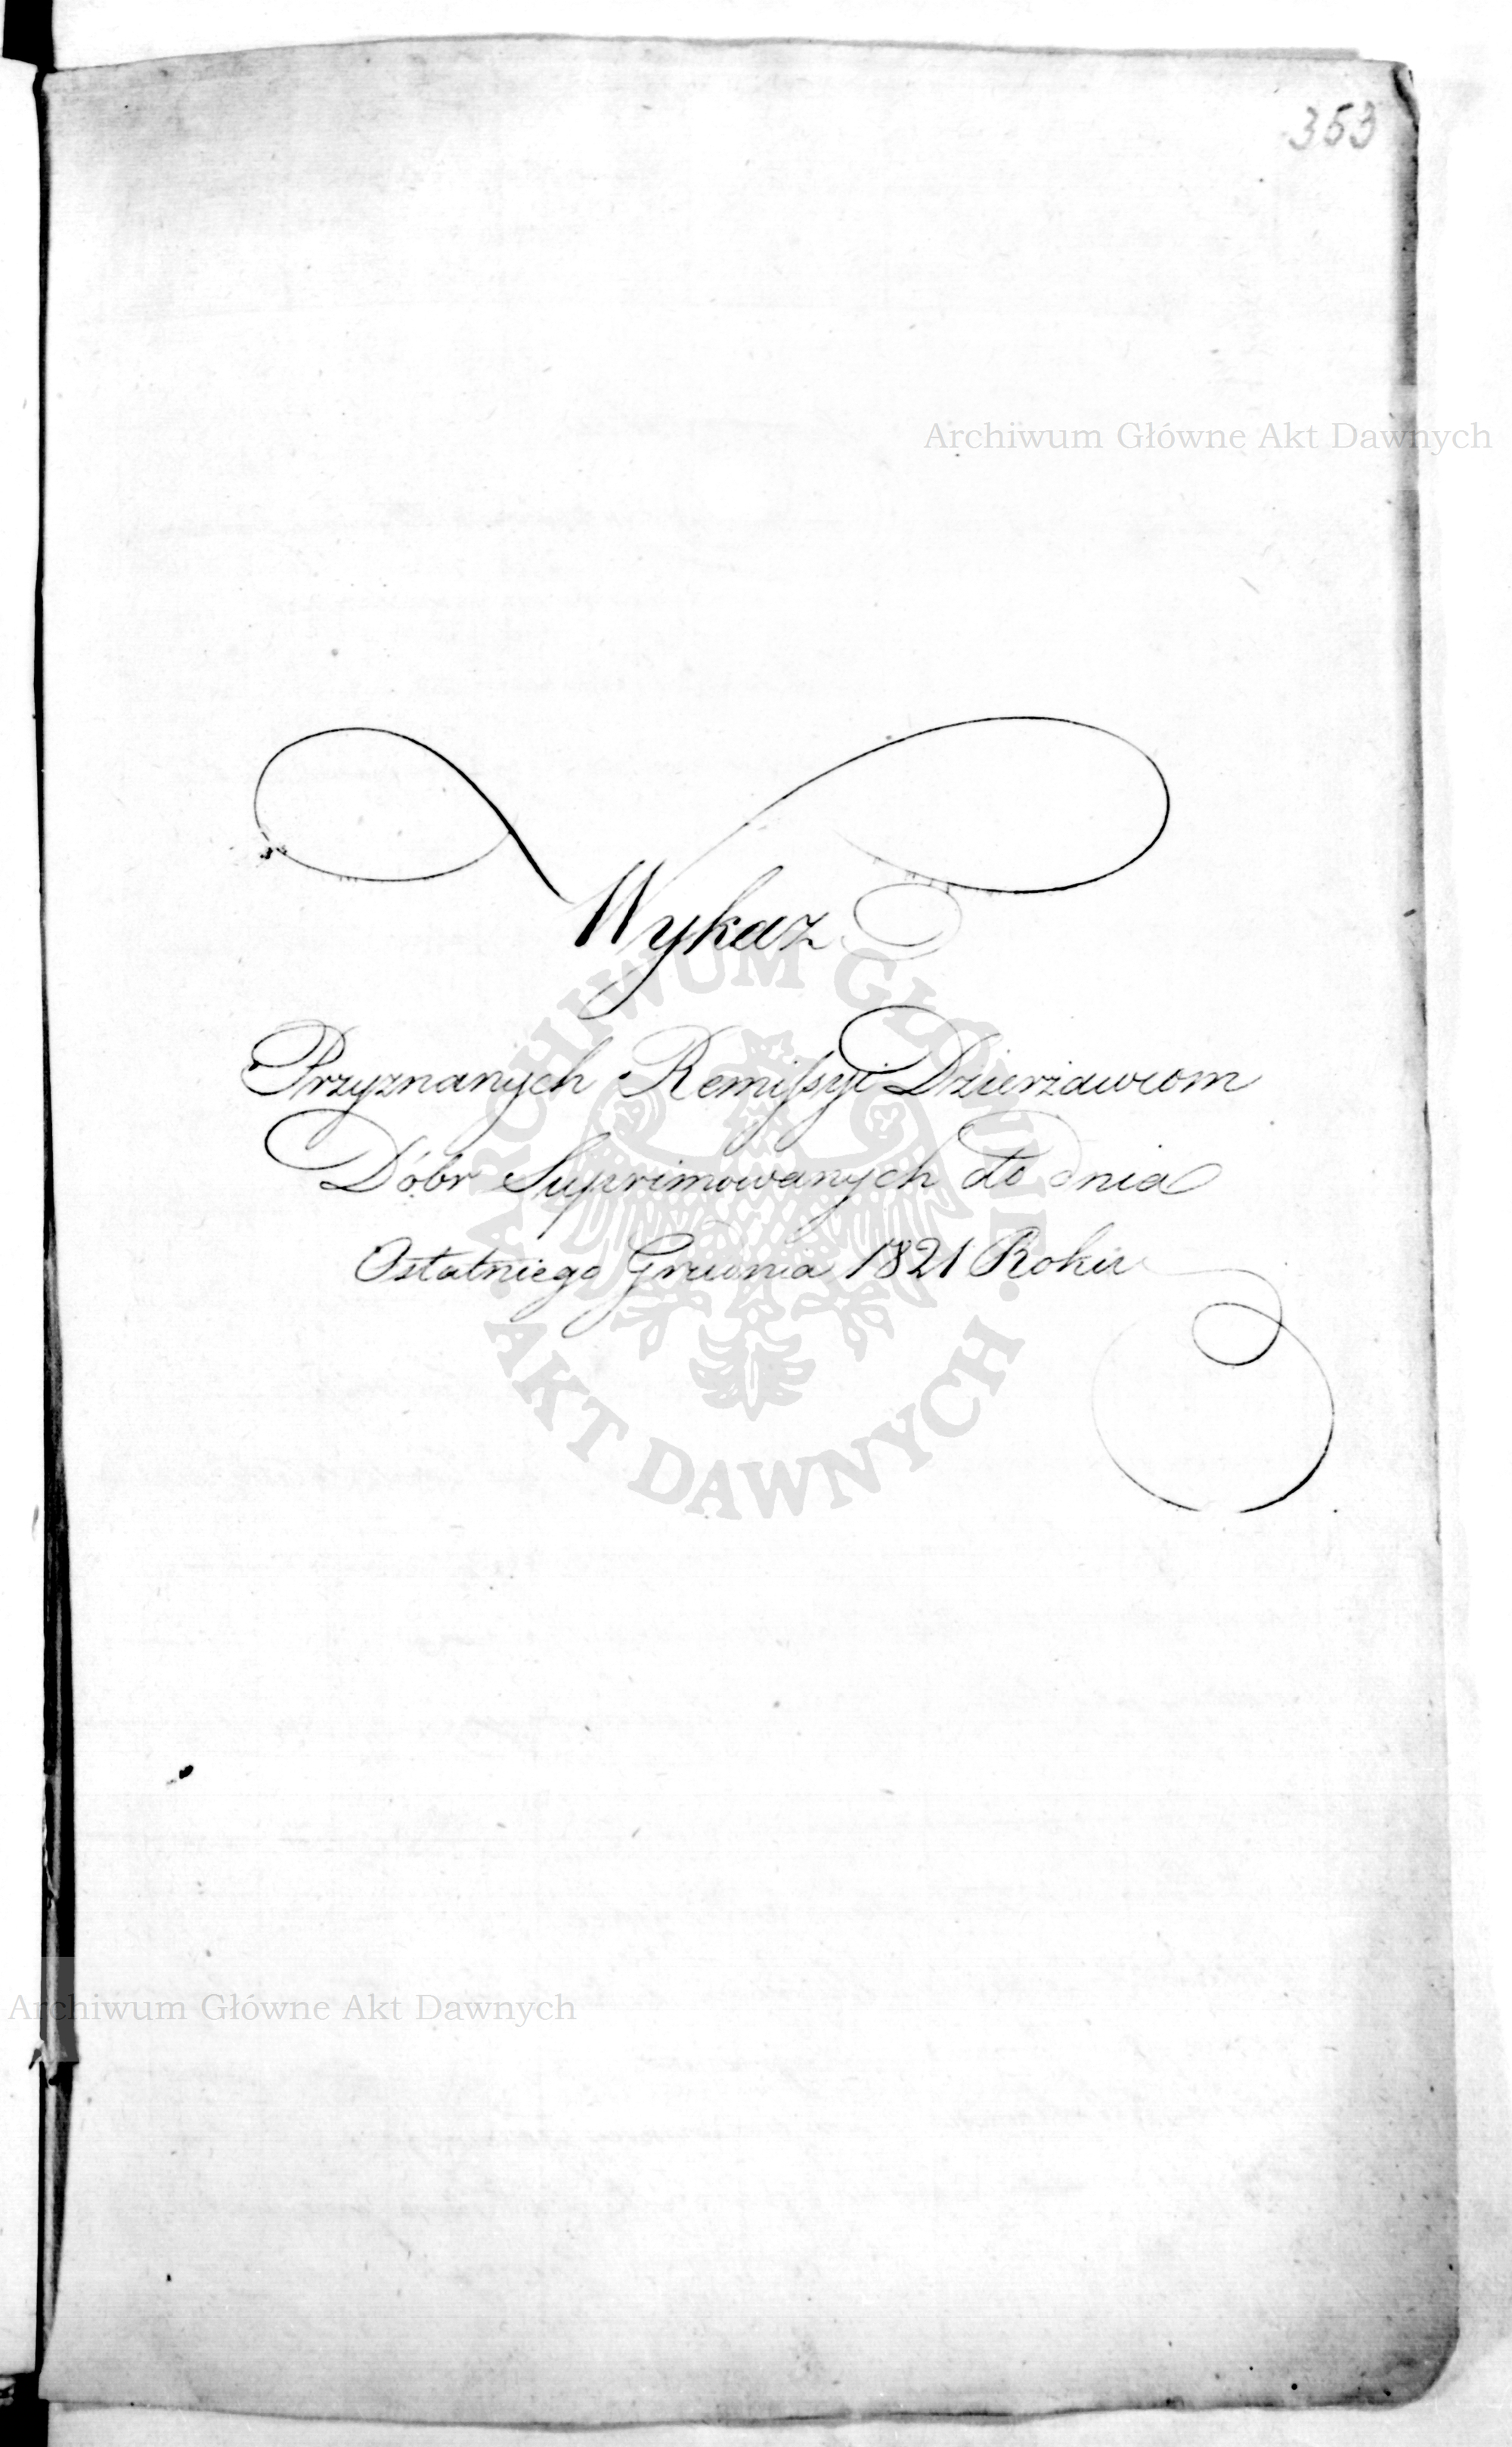 353
Archiwum Główne Akt Dawnych
Wykaz
Przyznanych Remissyi Dzierżawcom
Dóbr Suprimowanych do dnia
Ostatniego Grudnia 1821 Roku
ARCHIWUM GŁÓWNE
AKT DAWNYCH
Archiwum Główne Akt Dawnych